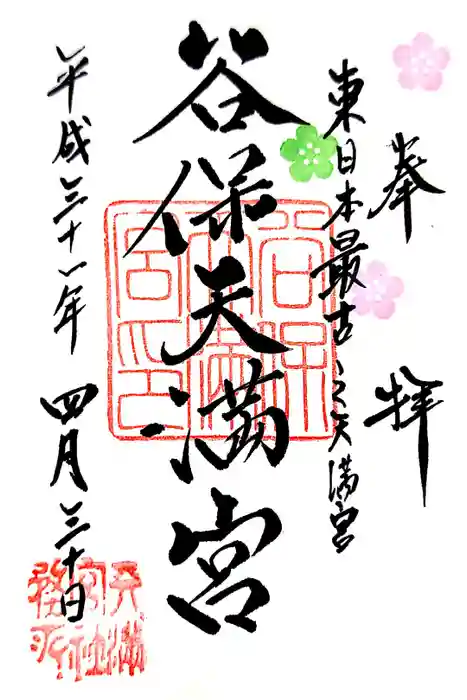 奉拝
東日本最古之天満宮
谷保天満宮
平成三十一年四月三十日
谷保天満宮印
天満宮社務所